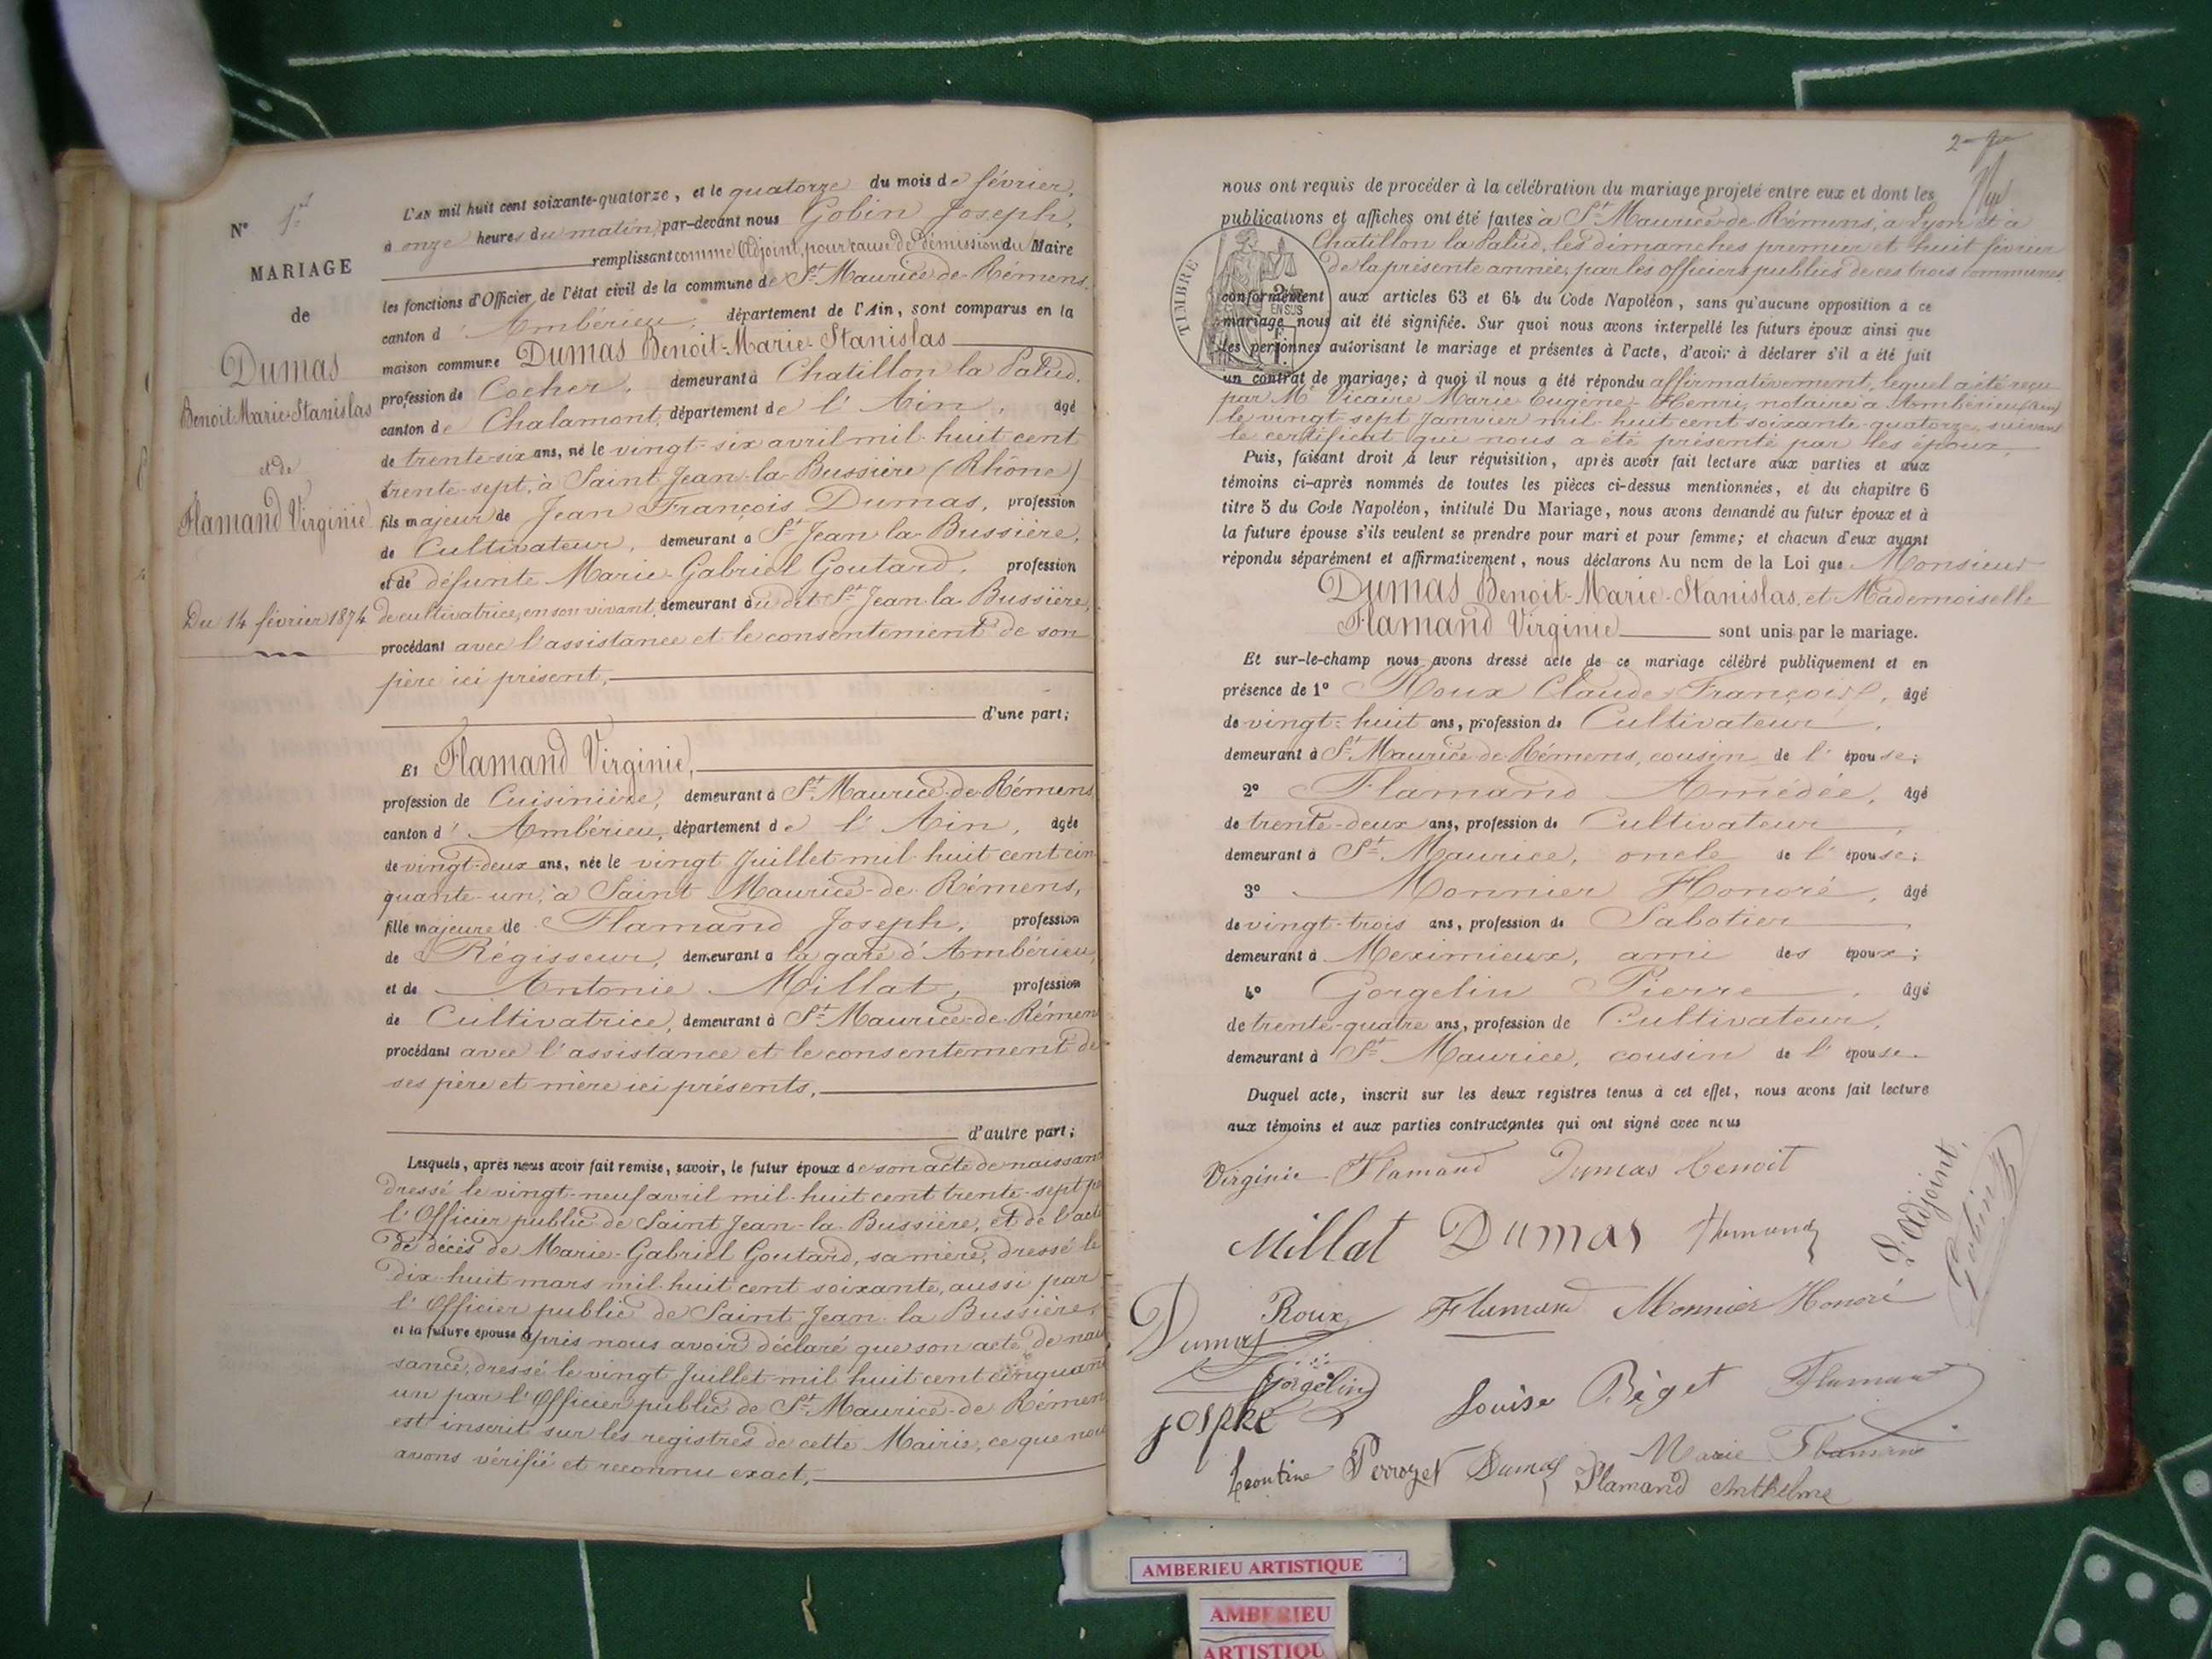 N° 1er
MARIAGE
de
Dumas
Benoit-Marie-Stanislas
et de
Flamand Virginie
Du 14 février 1874
L'AN mil huit cent soixante-quatorze, et le quatorze du mois de février,
à onze heures du matin, par-devant nous Gobin Joseph,
remplissant comme Adjoint, pour cause de démission du Maire
les fonctions d'Officier de l'état civil de la commune de St Maurice-de-Rémens,
canton d'Ambérieu, département de l'Ain, sont comparus en la
maison commune Dumas Benoit-Marie-Stanislas
profession de Cocher, demeurant à Chatillon la Palud,
canton de Chalamont, département de l'Ain, âgé
de trente-six ans, né le vingt-six avril mil-huit cent
trente-sept, à Saint Jean-la-Bussière (Rhône)
fils majeur de Jean François Dumas, profession
de Cultivateur, demeurant à St Jean la Bussière,
et de défunte Marie-Gabriel Goutard, profession
de cultivatrice, en son vivant, demeurant au dit St Jean la Bussière,
procédant avec l'assistance et le consentement de son
père ici présent,
d'une part;
Et Flamand Virginie,
profession de Cuisinière, demeurant à St Maurice-de-Rémens
canton d'Ambérieu, département de l'Ain, âgée
de vingt-deux ans, née le vingt Juillet mil-huit cent cin
quante-un, à Saint Maurice-de-Rémens,
fille majeure de Flamand Joseph, profession
de Régisseur, demeurant à la gare d'Ambérieu,
et de Antonie Millat, profession
de Cultivatrice, demeurant à St Maurice-de-Rémen
procédant avec l'assistance et le consentement de
ses père et mère ici présents,
d'autre part;
Lesquels, après nous avoir fait remise, savoir, le futur époux de son acte de naissan
dressé le vingt-neuf avril mil-huit cent trente-sept p
l'Officier public de Saint Jean-la-Bussière, et de l'acte
de décès de Marie-Gabriel Goutard, sa mère, dressé le
dix-huit mars mil-huit cent soixante, aussi par
l'Officier public de Saint Jean la Bussière,
et la future épouse après nous avoir déclaré que son acte de nais
sance, dressé le vingt Juillet mil huit cent cinquan
un par l'Officier public de St Maurice-de-Rémen
est inscrit sur les registres de cette Mairie, ce que nou
avons vérifié et reconnu exact,
nous ont requis de procéder à la célébration du mariage projeté entre eux et dont les
publications et affiches ont été faites à St Maurice-de-Rémens, à Lyon et à
Chatillon la Palud, les dimanches premier et huit février
de la présente année, par les officiers publics de ces trois communes,
TIMBRE
EN SUS
conformément aux articles 63 et 64 du Code Napoléon, sans qu'aucune opposition à ce
mariage nous ait été signifiée. Sur quoi nous avons interpellé les futurs époux ainsi que
les personnes autorisant le mariage et présentes à l'acte, d'avoir à déclarer s'il a été fait
un contrat de mariage; à quoi il nous a été répondu affirmativement, lequel a été reçu
par Me Vicaire Marie-Eugène-Henri, notaire à Ambérieu (Ain)
le vingt-sept Janvier mil-huit cent soixante-quatorze, suivant
le certificat qui nous a été présenté par les époux,
Puis, faisant droit à leur réquisition, après avoir fait lecture aux parties et aux
témoins ci-après nommés de toutes les pièces ci-dessus mentionnées, et du chapitre 6
titre 5 du Code Napoléon, intitulé Du Mariage, nous avons demandé au futur époux et à
la future épouse s'ils veulent se prendre pour mari et pour femme; et chacun d'eux ayant
répondu séparément et affirmativement, nous déclarons Au nom de la Loi que Monsieur
Dumas Benoit-Marie-Stanislas, et Mademoiselle
Flamand Virginie sont unis par le mariage.
Et sur-le-champ nous avons dressé acte de ce mariage célébré publiquement et en
présence de 1° Roux Claude-François, âgé
de vingt-huit ans, profession de Cultivateur,
demeurant à St Maurice de Rémens, cousin de l'épouse;
2° Flamand Amédée, âgé
de trente-deux ans, profession de Cultivateur,
demeurant à St Maurice, oncle de l'épouse;
3° Monnier Honoré, âgé
de vingt-trois ans, profession de Sabotier
demeurant à Meximieux, ami des époux;
4° Gorgelin Pierre, âgé
de trente-quatre ans, profession de Cultivateur,
demeurant à St Maurice, cousin de l'épouse.
Duquel acte, inscrit sur les deux registres tenus à cet effet, nous avons fait lecture
aux témoins et aux parties contractantes qui ont signé avec nous
Virginie Flamand Dumas benoit
Millat Dumas Flamand
L'Adjoint,
Gobin J
Roux Flamand Monnier Honoré
Dumas
josphe
Gorgelin
Louise Béget Flamand
Marie Flamand
Leontine Perrozet Dumas Flamand Anthelme
AMBERIEU ARTISTIQUE
AMBERIEU
ARTISTIQU